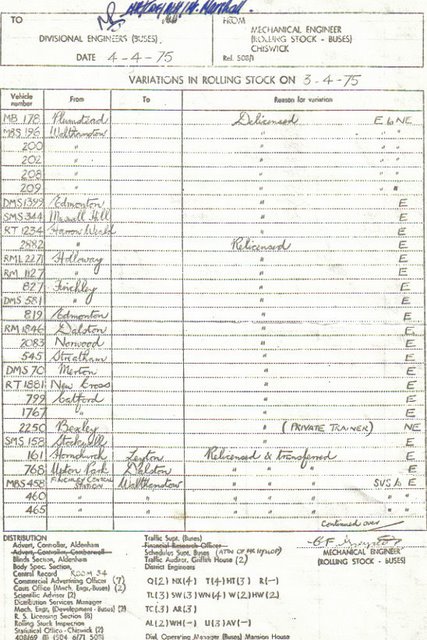 TO FROM
MECHANICAL ENGINEER
DIVISIONAL ENGINEERS (BUSES) (ROLLING STOCK - BUSES)
CHISWICK
DATE 4-4-75 Ref. 508/1
VARIATIONS IN ROLLING STOCK ON 3-4-75
Vehicle number From To Reason for variation
MB 178 Plumstead Delicensed E to NE
MBS 196 Walthamstow " " "
200 " " " "
202 " " " "
208 " " " "
209 " " " "
DMS 1399 Edmonton " E
SMS 344 Muswell Hill " E
RT 1234 Harrow Weald " E
2882 " Relicensed E
RML 2271 Holloway " E
RM 1127 " " E
827 Finchley " E
DMS 581 " " E
819 Edmonton " E
RM 1846 Dalston " E
2083 Norwood " E
545 Streatham " E
DMS 70 Merton " E
RT 1881 New Cross " E
799 Catford " E
1767 " " E
2250 Bexley " (PRIVATE TRAINER) NE
SMS 158 Stockwell " E
161 Hornchurch Leyton Relicensed & transferred E
768 Upton Park Dalston " " " E
MBS 458 FINCHLEY CENTRAL STATION Walthamstow " " " SUS to E
460 " " " " " " "
465 " " " " " " "
Continued over
DISTRIBUTION
Advert. Controller, Aldenham
Advert. Controller, Camberwell
Blinds Section, Aldenham
Body Spec. Section,
Central Record ROOM 34
Commercial Advertising Officer (7)
Cours Office (Mech. Engr.-Buses) (2)
Scientific Adviser (2)
Distribution Services Manager
Mech. Engr. (Development - Buses) (2)
R. S. Licensing Section (8)
Rolling Stock Inspection
Statistical Office - Chiswick (2)
Traffic Supt. (Buses)
Financial Research Officer
Schedules Supt. Buses (ATTN OF MR HYSLOP)
Traffic Auditor, Griffith House (2)
District Engineers
Q(2) NX(4) T(4) HT(3) R(-)
TL(3) SW(3) WN(4) W(2) HW(2)
TC(3) AR(3)
AL(2) WH(-) U(3) AV(-)
Disl. Operating Manager (Buses) Mansion House
MECHANICAL ENGINEER
(ROLLING STOCK - BUSES)